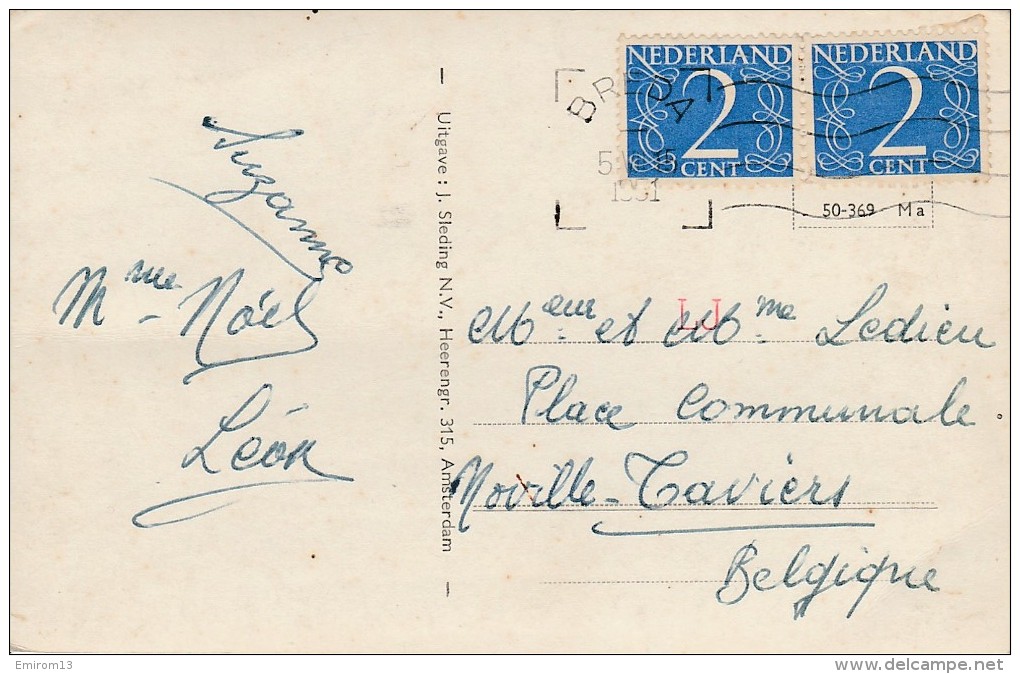 NEDERLAND
2
CENT
NEDERLAND
2
CENT
BREDA
1951
50-369 Ma
Uitgave: J. Sleding N.V., Heerengr. 315, Amsterdam
Suzanne
Mme Nóel
Léon
LJ
Meur et Mme Ledieu
Place Communale
Noville-Taviers
Belgique
Emirom13
www.delcampe.net